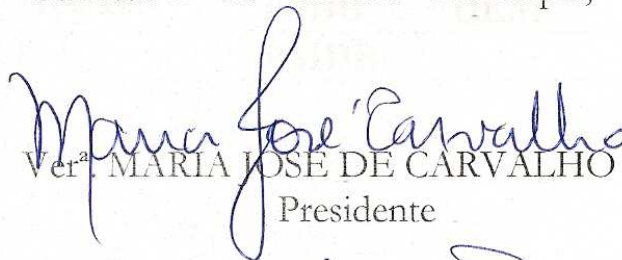 Maria José Carvalho
Verª. MARIA JOSÉ DE CARVALHO
Presidente